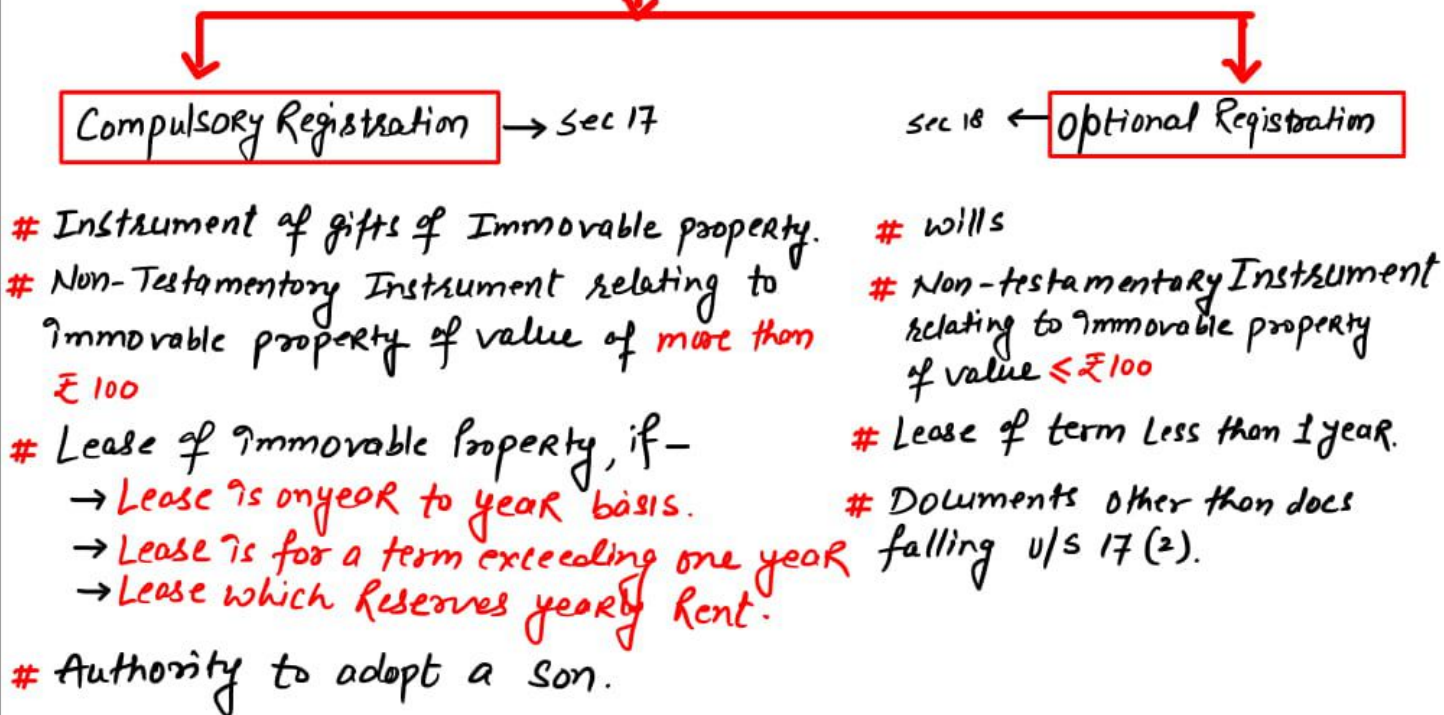 Compulsory Registration → Sec 17
Sec 18 ← Optional Registration
# Instrument of gifts of Immovable property.
# Non-Testamentory Instrument relating to
immovable property of value of more than
₹ 100
# Lease of immovable Property, if –
→ Lease is on year to year basis.
→ Lease is for a term exceeding one year
→ Lease which Reserves yearly Rent.
# Authority to adopt a Son.
# wills
# Non-testamentary Instrument
relating to immovable property
of value ≤ ₹100
# Lease of term Less than 1 year.
# Documents other than docs
falling u/s 17 (2).